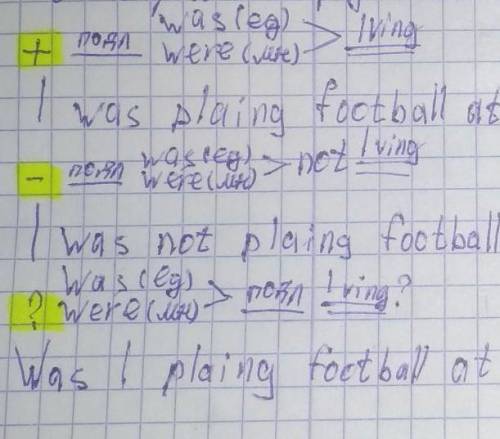 was(eg)
+ подл were(мн) > Iving
I was plaing football at
was(eg)
- подл were(мн) > not Iving
I was not plaing football
was(eg)
? were(мн) > подл Iving?
Was I plaing football at